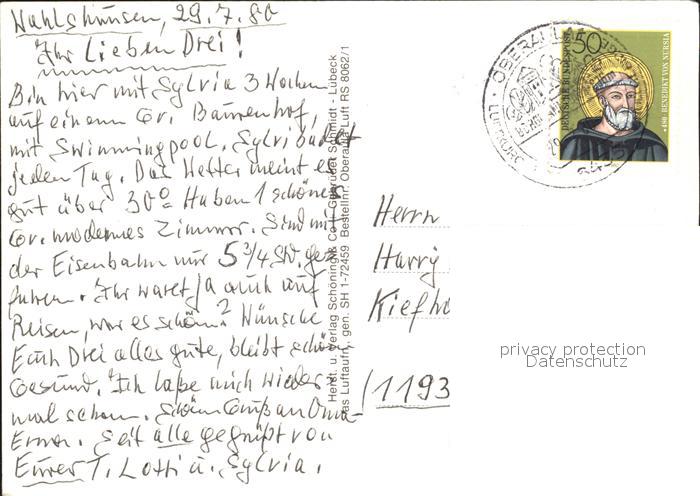 Wahlshausen, 29.7.80
Ihr Lieben Drei!
Bin hier mit Sylvia 3 Wochen
auf einem Gr. Bauernhof,
mit Swimmingpool. Sylvi badet
jeden Tag. Das Wetter meint es
gut über 30° Haben 1 schönes
Gr. modernes Zimmer. Sind mit
der Eisenbahn nur 5 3/4 Std. ge-
fahren. Ihr waret ja auch auf
Reisen, war es schön? Wünsche
Euch Drei alles gute, bleibt schön
Gesund. Ich laße mich wieder
mal sehen. Schönen Gruß an Oma
Erna. Seit alle gegrüßt von
Eurer T. Lotti u. Sylvia.
Herst. u. Verlag Schöning & Co + Gebrüder Schmidt - Lübeck
Luftaufn. gen. SH 1-72459 Bestellnr. Oberau Luft RS 8062/1
OBERAULA
50
DEUTSCHE BUNDESPOST
*480 BENEDIKT VON NURSIA
Herrn
Harry
(1193
privacy protection
Datenschutz